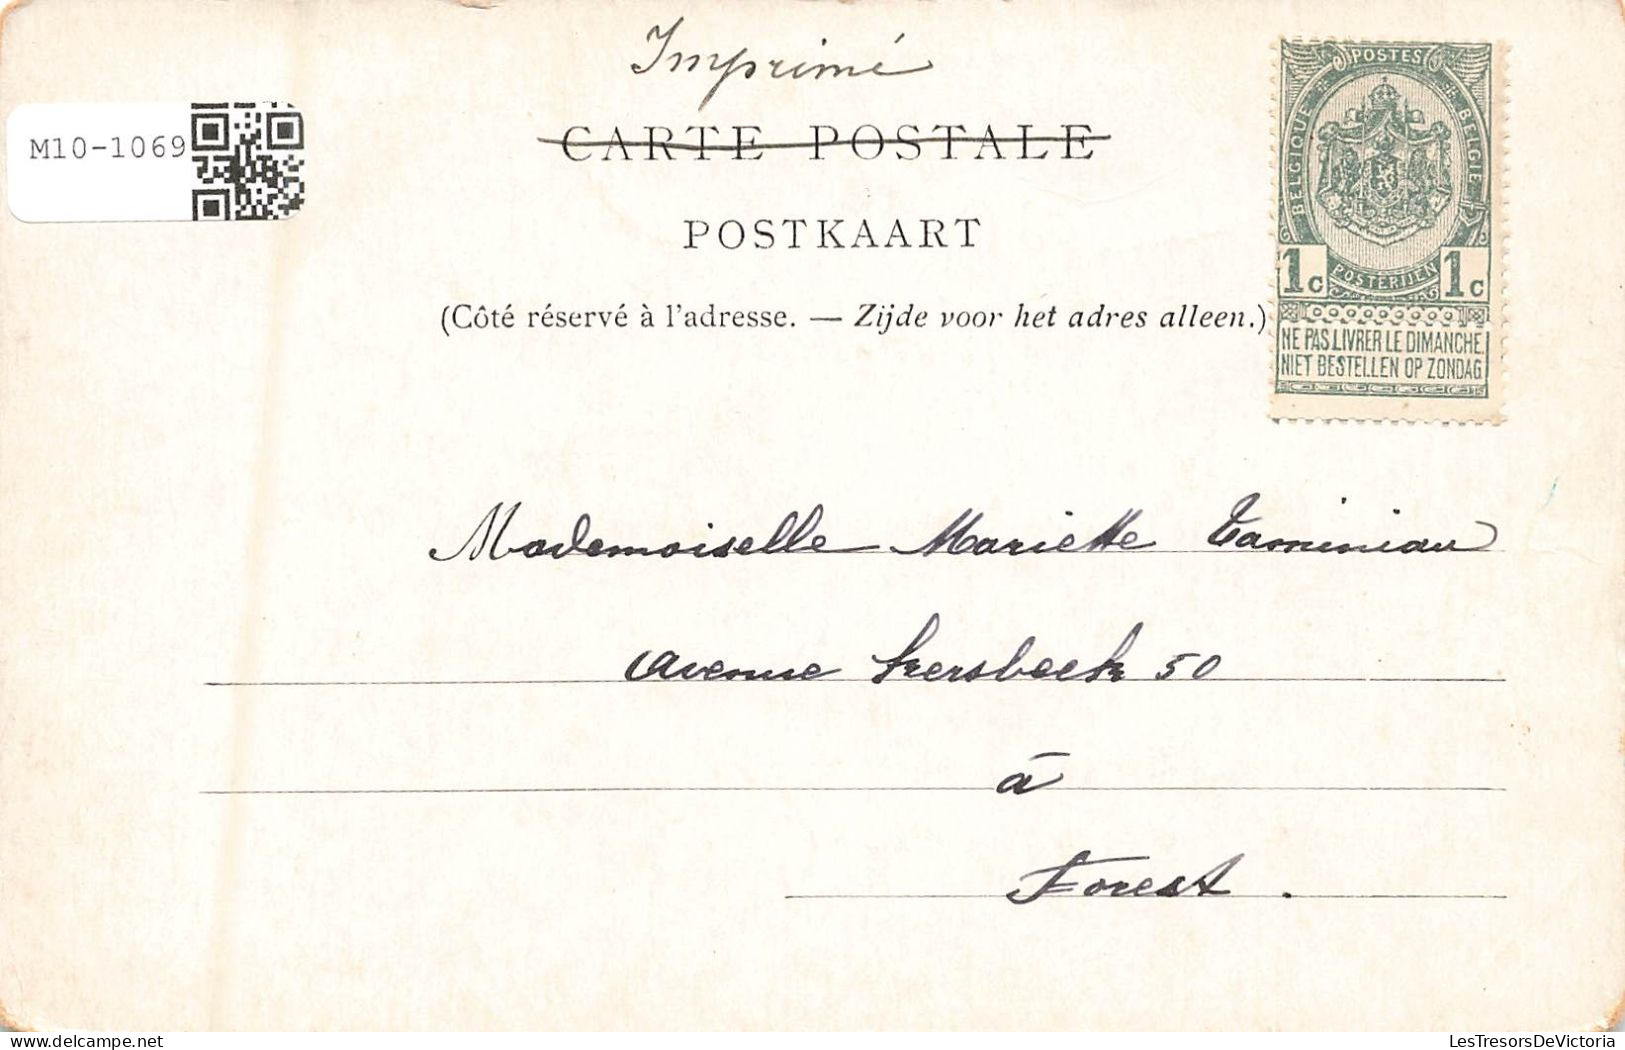 Imprimé
CARTE POSTALE
M10-1069
POSTKAART
(Côté réservé à l'adresse. — Zijde voor het adres alleen.)
POSTES
BELGIQUE
BELGIE
POSTERIJEN
1c 1c
NE PAS LIVRER LE DIMANCHE.
NIET BESTELLEN OP ZONDAG
Mademoiselle Mariette Taminiau
Avenue Kersbeek 50
à
Forest.
LesTresorsDeVictoria